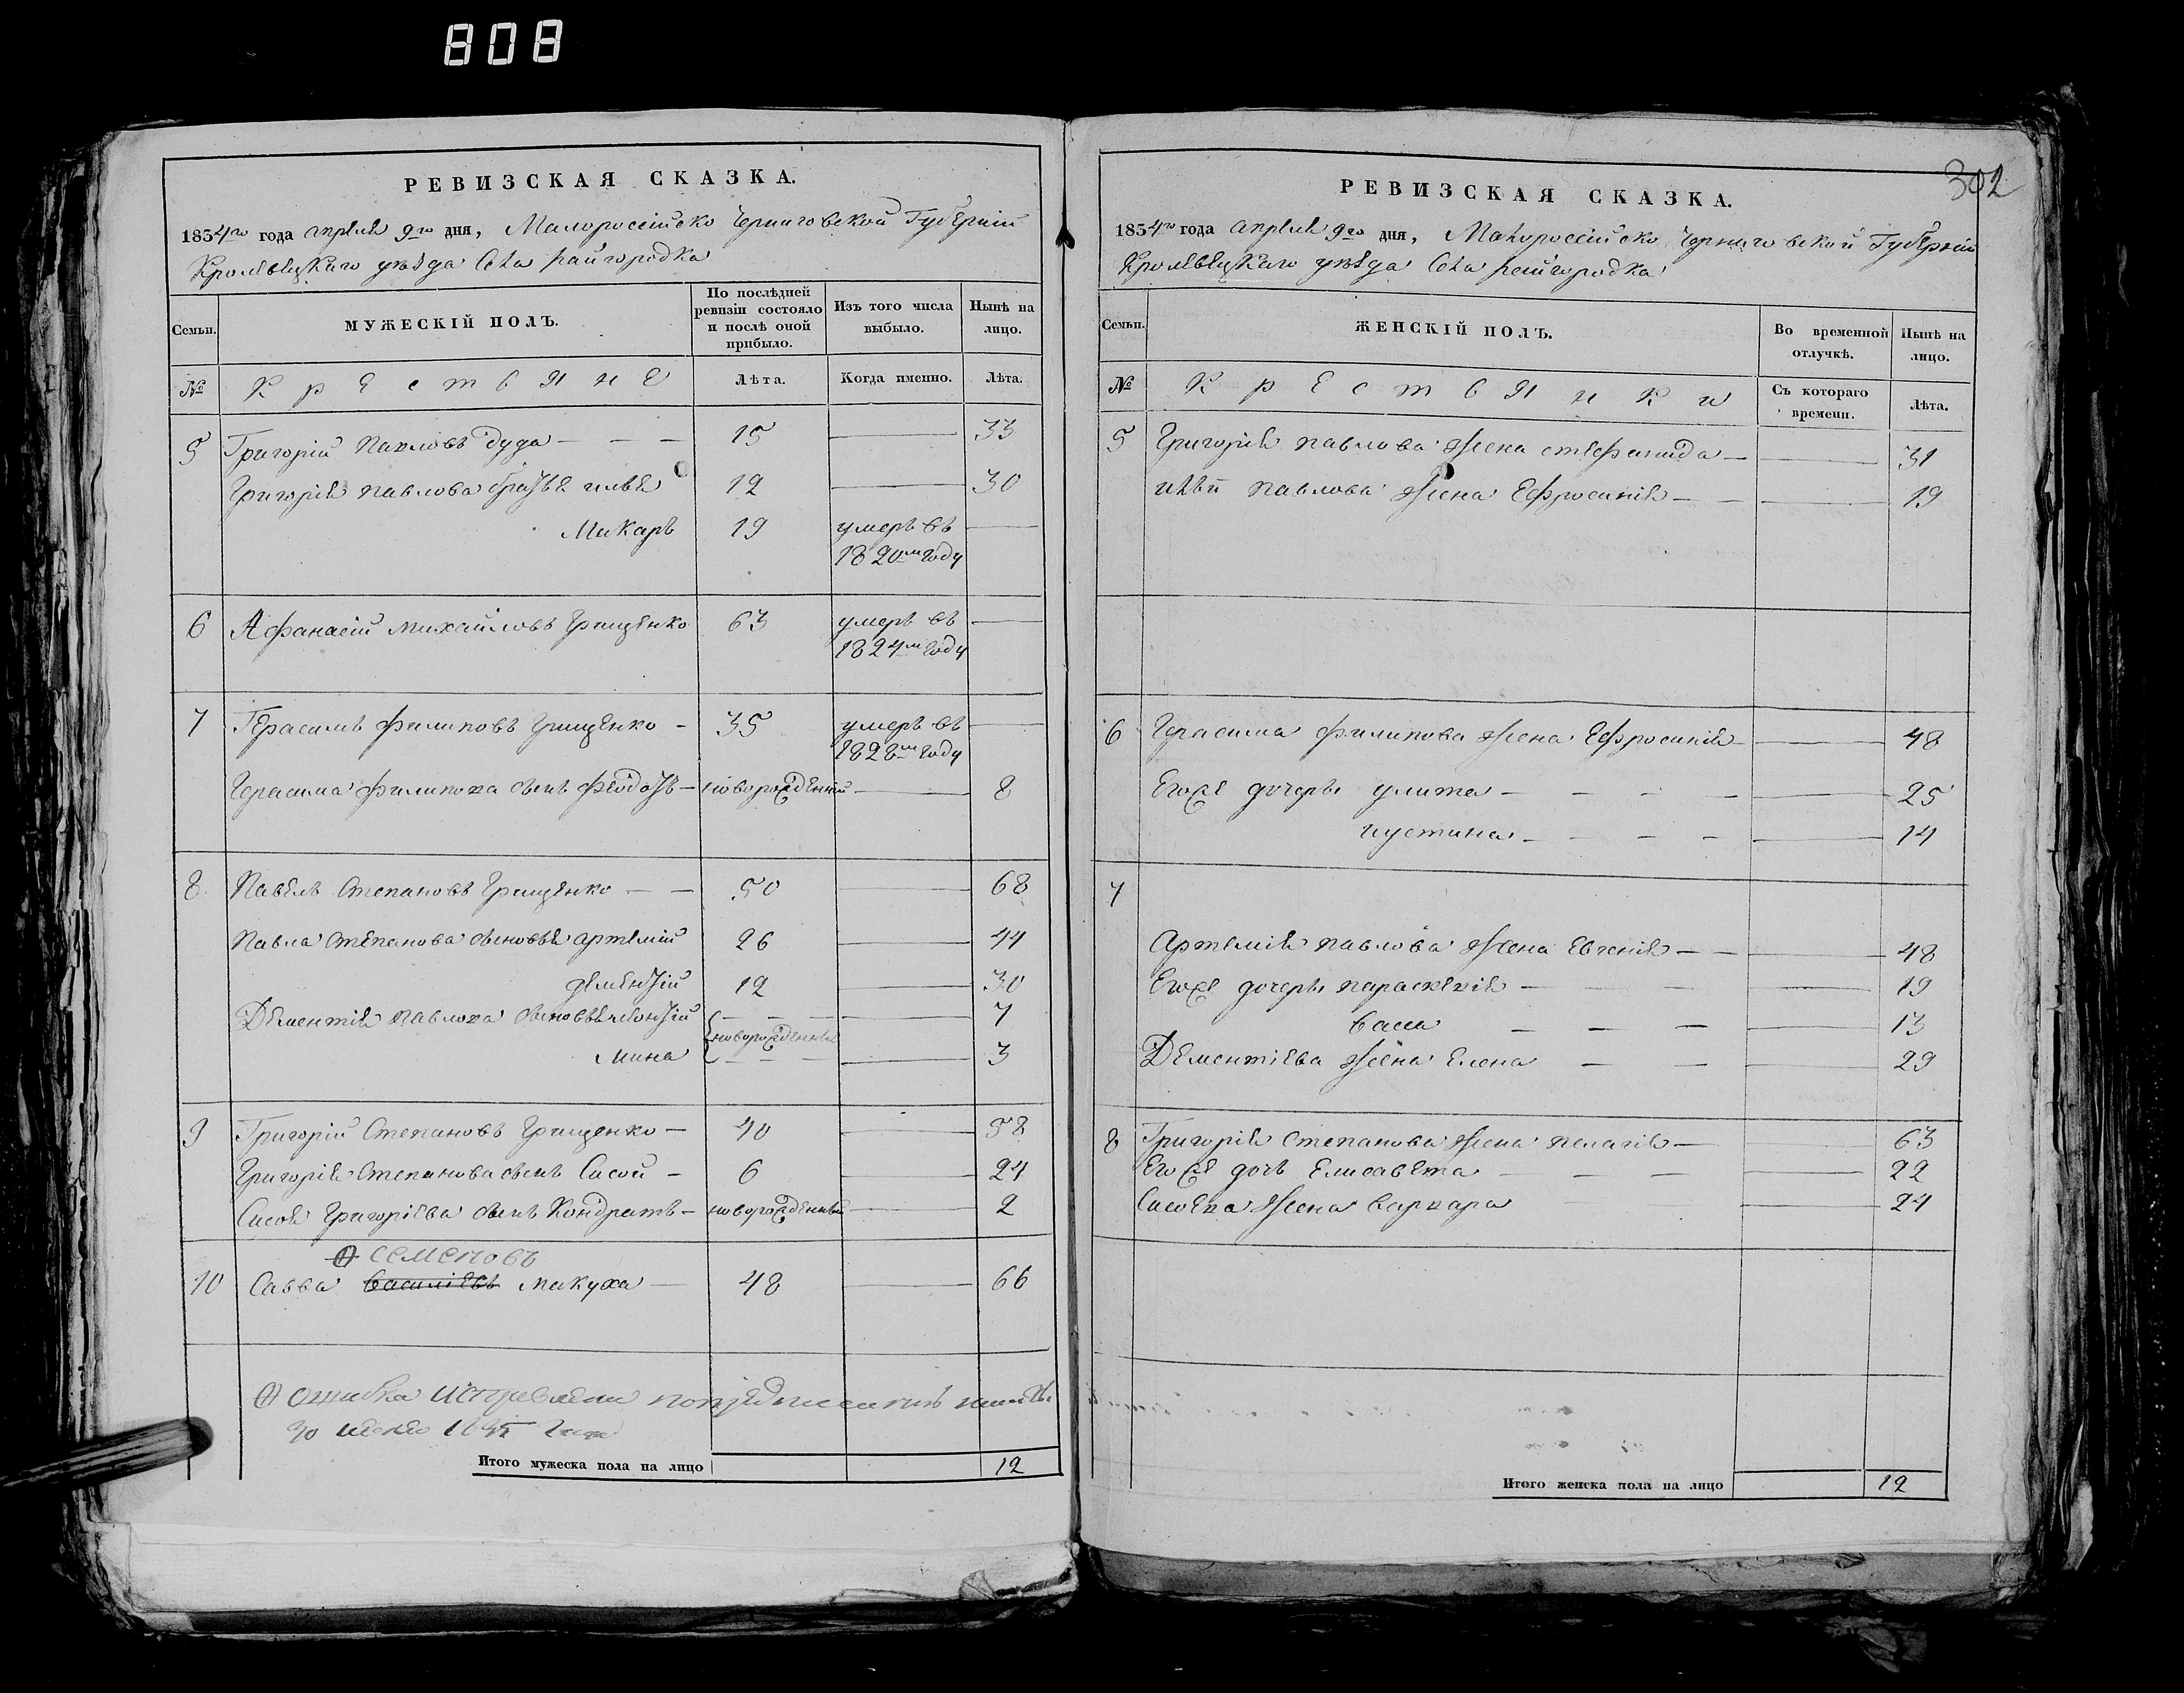 808
РЕВИЗСКАЯ СКАЗКА.
1834го года апреля 9го дня, Малороссійско Черниговской Губерніи
Кролевецкаго уезда Села райгородка
Семьи.
МУЖЕСКІЙ ПОЛЪ.
По послѣдней ревизіи состояло и послѣ оной прибыло.
Изъ того числа выбыло.
Нынѣ на лицо.
№
Крестьяне
Лѣта.
Когда именно.
Лѣта.
5 Григорій Павловъ Дуда — — — 15 — 33
Григорія павлова братья илья 12 — 30
Макаръ 19 умеръ въ —
1820м году
6 Афанасій михайловъ Грищенко 63 умеръ въ —
1824м году
7 Герасимъ филиповъ Грищенко — 35 умеръ въ —
1828м году
Герасима филипова сынъ Федотъ — новорожденній — 8
8 Павелъ Степановъ Грищенко — — 50 — 68
Павла Степанова сыновья артемій 26 — 44
дементій 12 — 30
Дементія Павлова сыновья леонтій — — — 7
новорожденные
Мина — — — 3
9 Григорій Степановъ Грищенко — 40 — 58
Григорія Степанова сынъ Сисой — 6 — 24
Сисоя Григоріева сынъ Кондратъ — новорожденный — 2
Семеновъ
10 Савва Василіевъ Макуха — 48 — 66
ошибка исправлена
Итого мужеска пола на лицо 12
302
РЕВИЗСКАЯ СКАЗКА.
1834го года апреля 9го дня, Малороссійско Черниговской Губерніи
Кролевецкаго уезда Села райгородка
Семьи.
ЖЕНСКІЙ ПОЛЪ.
Во временной отлучкѣ.
Нынѣ на лицо.
№
Крестьянки
Съ котораго времени.
Лѣта.
5 Григорія павлова жена стефанида — — 31
ильи павлова жена Ефросинія — — — 19
6 Герасима филипова жена Ефросинія — — 48
Егоже дочеры улита — — — — — 25
иустина — — — — — 14
7
Артемія павлова жена Евгенія — — — 48
Егоже дочеры параскевія — — — — 19
васса — — — — 13
Дементіева жена Елена — — — 29
8 Григорія Степанова жена пелагія — — 63
Егоже дочь Елисавета — — — — 22
Сисоева жена варвара — 24
Итого женска пола на лицо 12